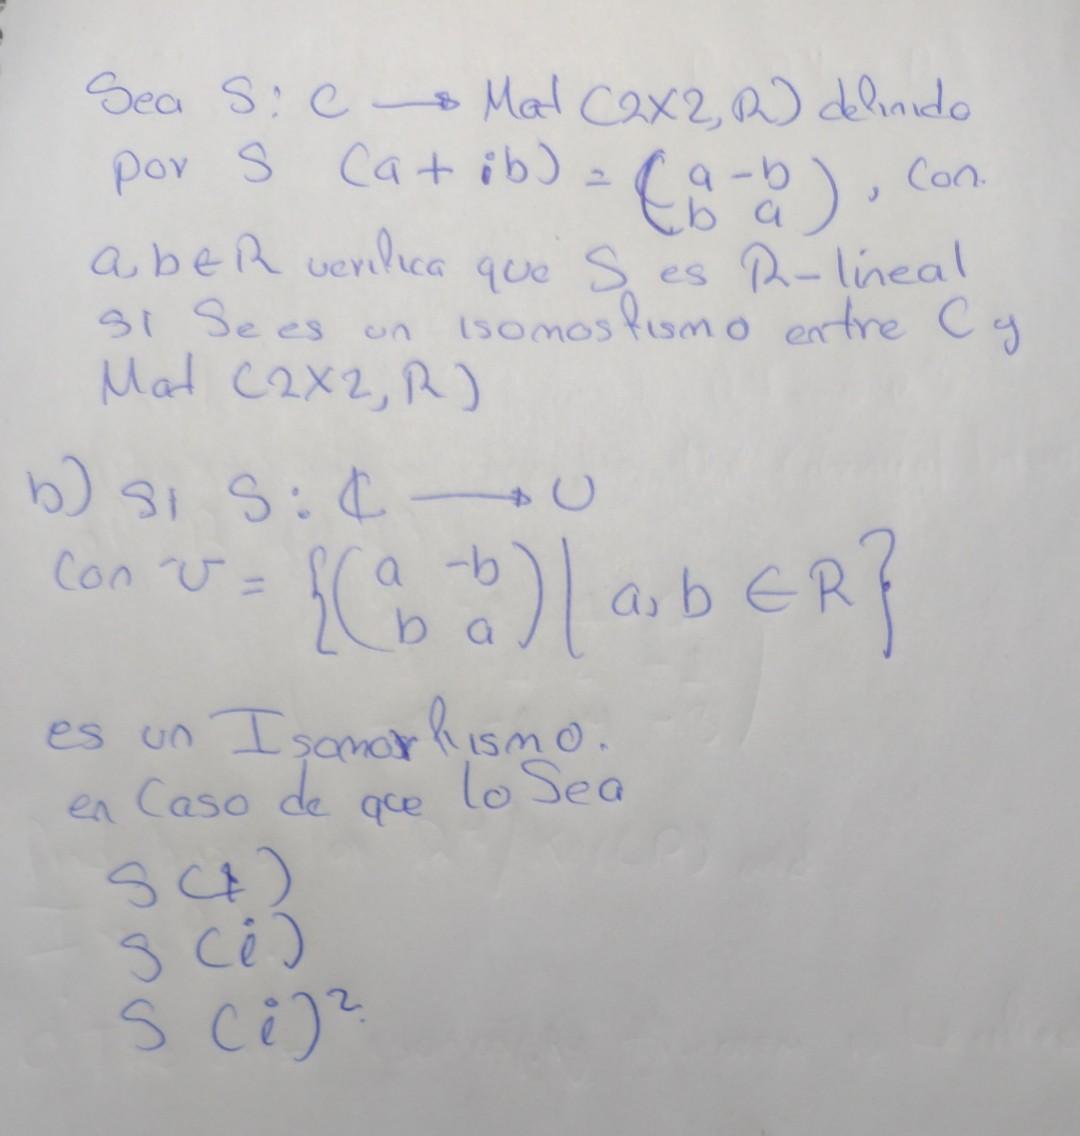 Sea S: C → Mat (2x2, R) definido
por S (a + ib) = (a -b
b a), con.
a, b ∈ R verifica que S es R-lineal
si Se es un isomosfismo entre C y
Mat (2x2, R)
b) si S: ℂ → U
Con U = {(a -b
b a) | a, b ∈ R}
es un Isomorfismo.
en Caso de que lo Sea
S(1)
S(i)
S(i)²